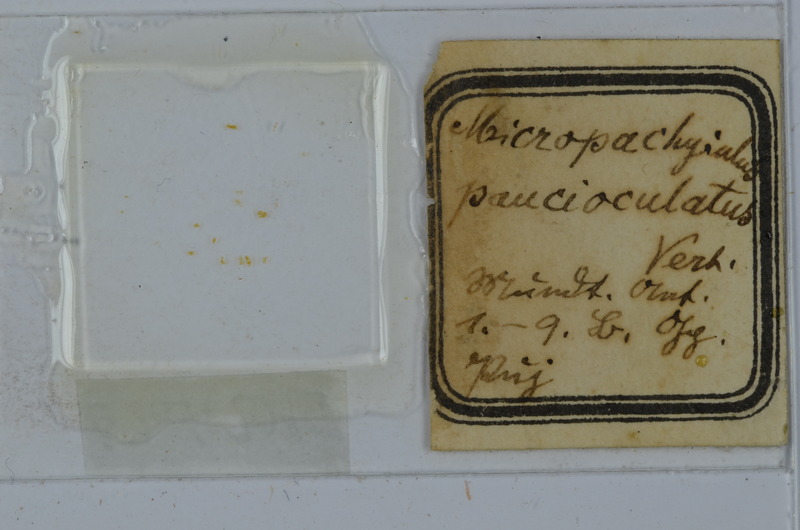 Micropachyiulus
paucioculatus
Verh.
Mundt. Ant.
1.-9. B. Jg.